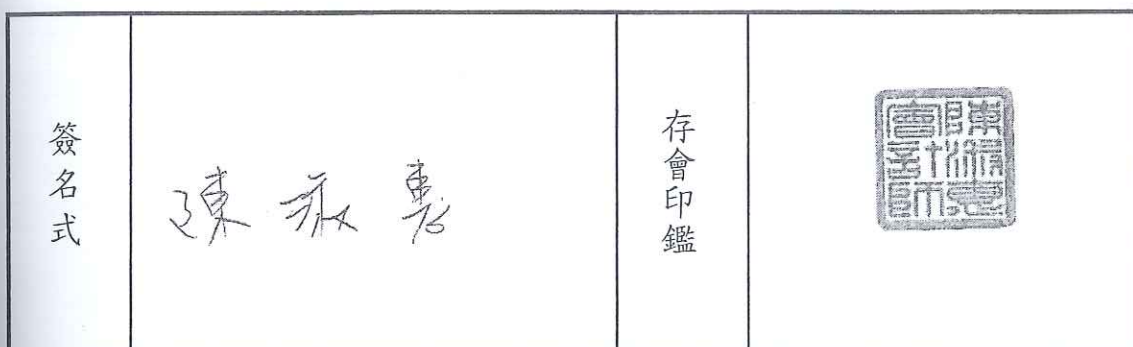 簽名式
陳淑惠
存會印鑑
陳淑惠會計師